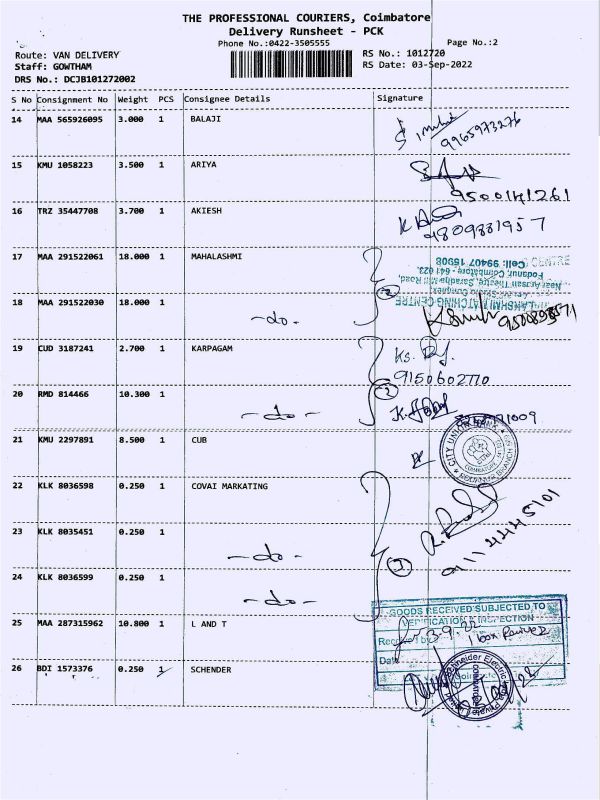 THE PROFESSIONAL COURIERS, Coimbatore
Delivery Runsheet - PCK
Phone No.:0422-3505555
Page No.:2
Route: VAN DELIVERY
RS No.: 1012720
Staff: GOWTHAM
RS Date: 03-Sep-2022
DRS No.: DCJB101272002
S No Consignment No Weight PCS Consignee Details Signature
14 MAA 565926095 3.000 1 BALAJI
9965973276
15 KMU 1058223 3.500 1 ARIYA
9500141261
16 TRZ 35447708 3.700 1 AKIESH
9809881957
17 MAA 291522061 18.000 1 MAHALASHMI
Cell: 99407 15908
Podanur, Coimbatore - 641 023.
2
18 MAA 291522030 18.000 1
-do-
MATCHING CENTRE
19 CUD 3187241 2.700 1 KARPAGAM
9150602770
20 RMD 814466 10.300 1
2
-do-
21 KMU 2297891 8.500 1 CUB
CITY UNION BANK
COIMBATORE
22 KLK 8036598 0.250 1 COVAI MARKATING
23 KLK 8035451 0.250 1
9114445101
-do-
3
24 KLK 8036599 0.250 1
-do-
GOODS RECEIVED SUBJECTED TO
VERIFICATION & INSPECTION
25 MAA 287315962 10.800 1 L AND T
3.9.22
Received by
1 box
Date
26 BDI 1573376 0.250 1 SCHENDER
Schneider Electric